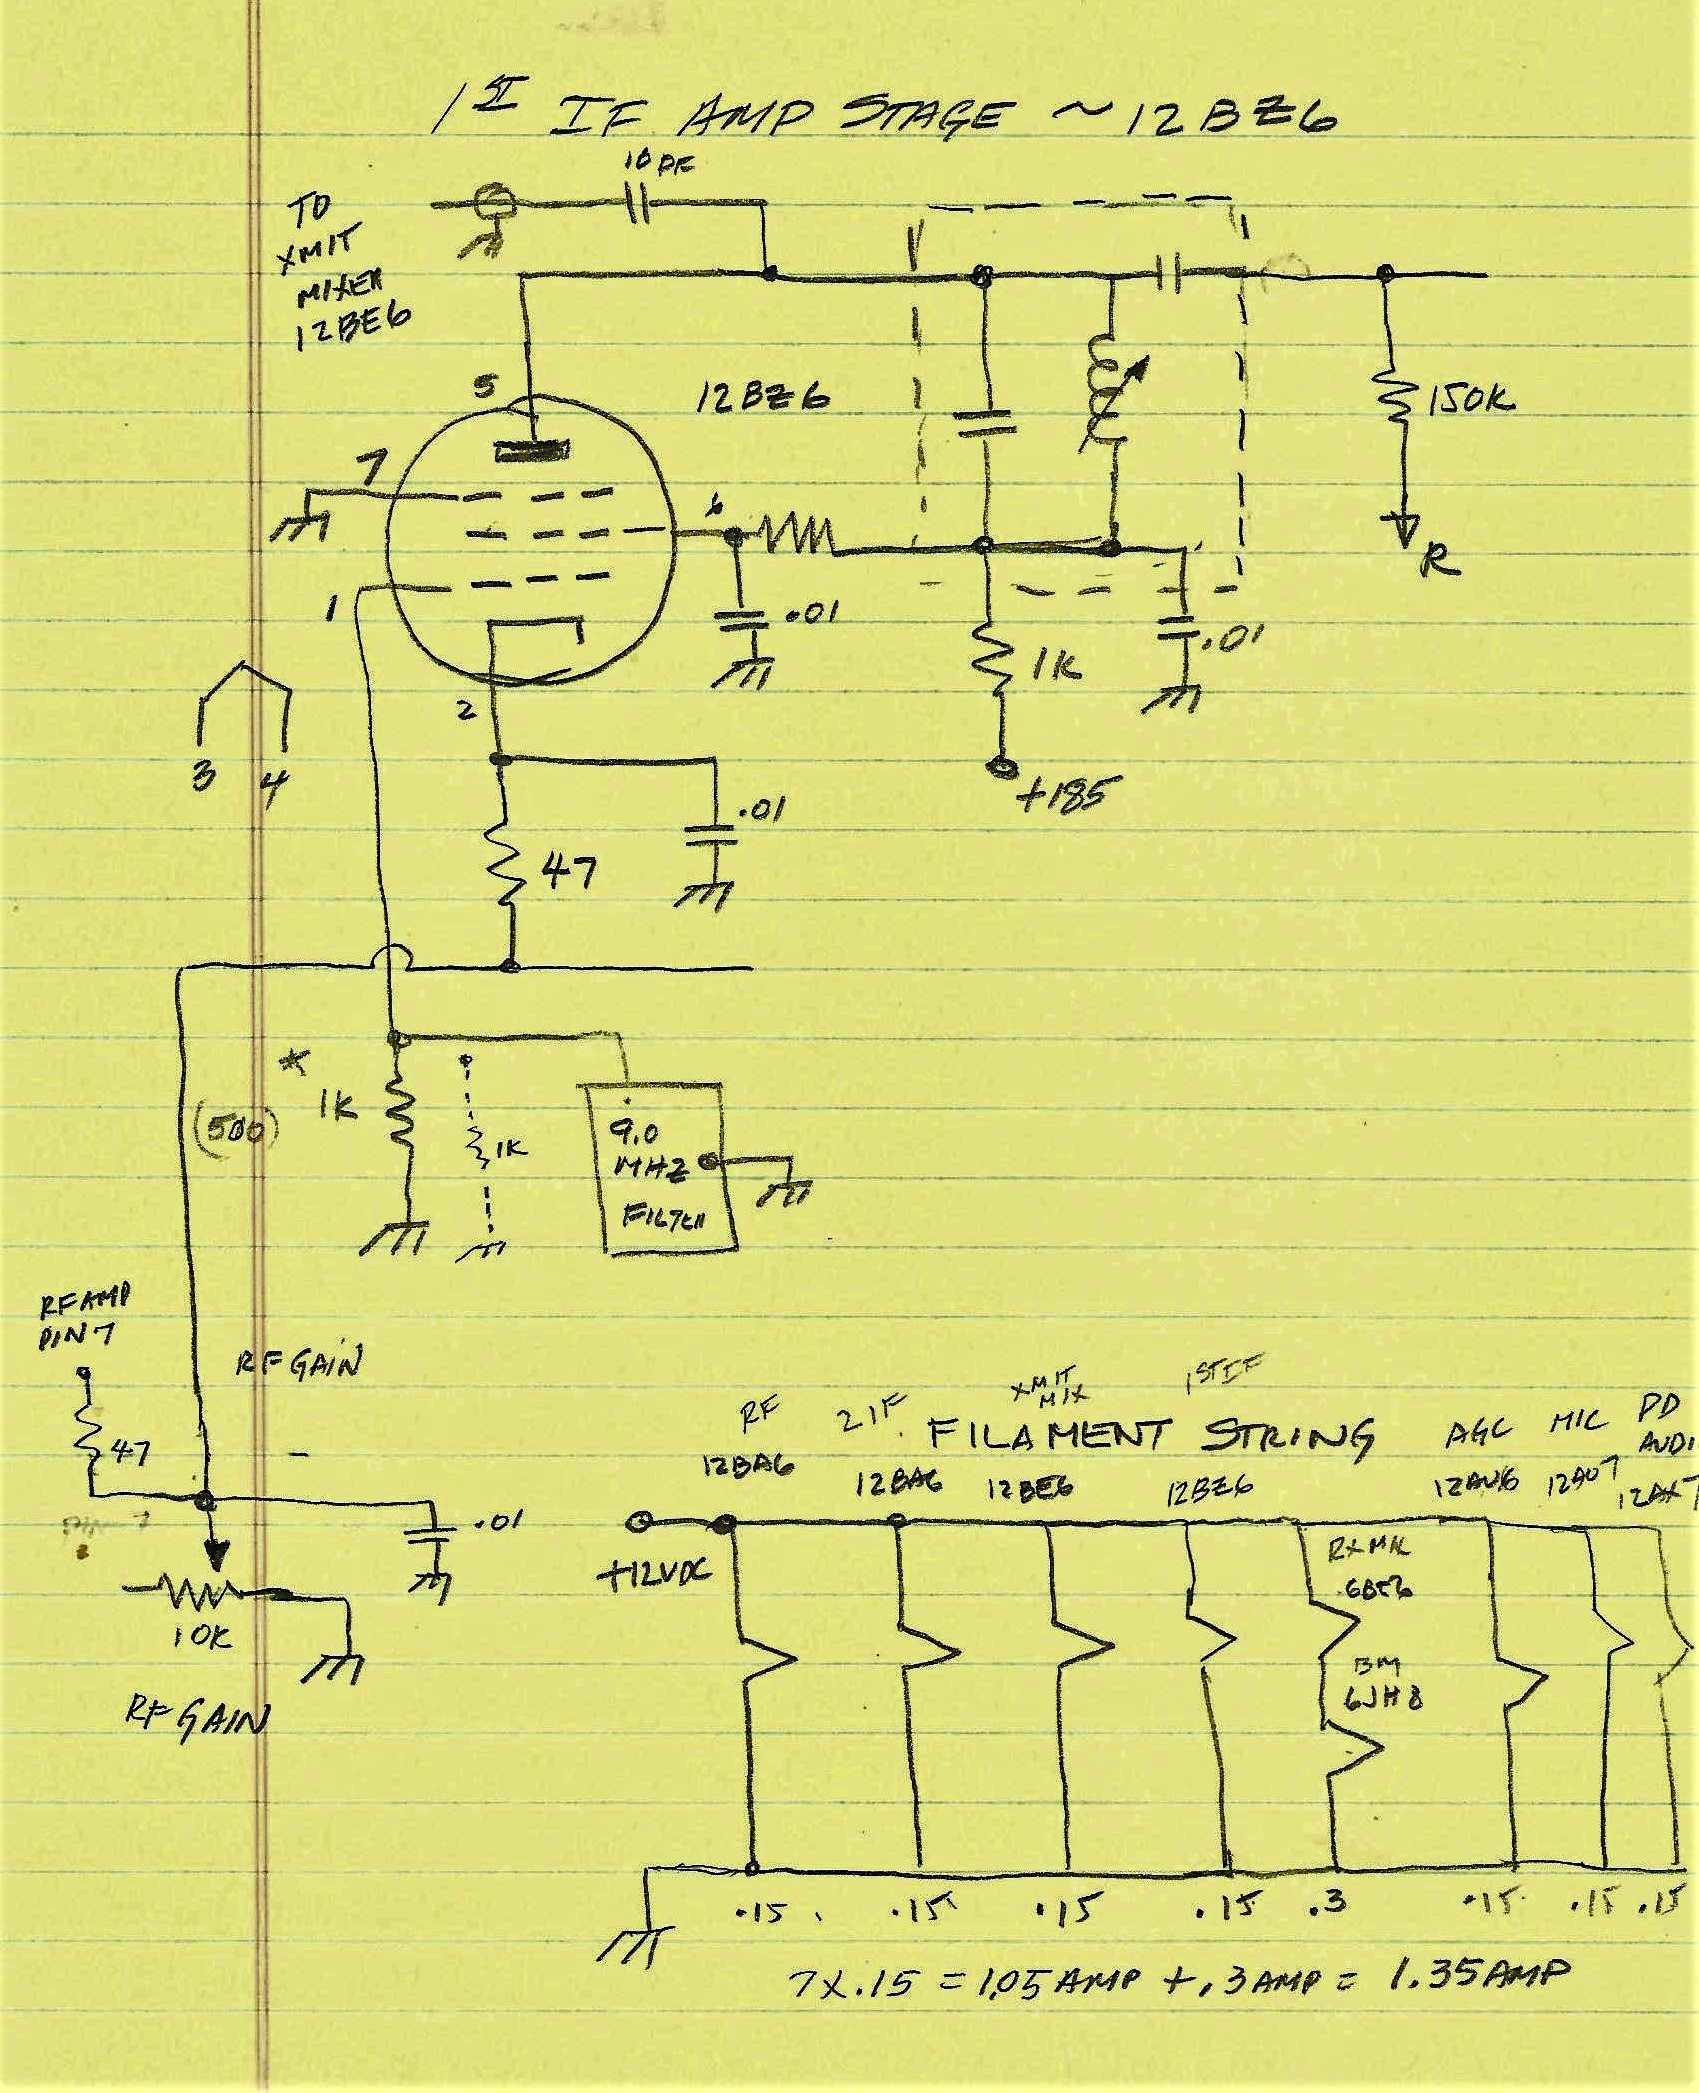 1ST IF AMP STAGE ~ 12BZ6
10 PF
TO
XMIT
MIXER
12BE6
5
12BZ6
7
150K
6
R
1
.01
.01
1K
2
3 4
+185
.01
47
*
1K
(500)
1K
9.0
MHZ
FILTER
RF AMP
PIN 7
RF GAIN
47
.01
10K
RF GAIN
RF
2 IF
XMIT
MIX
1ST IF
FILAMENT STRING
AGC
MIC
PD
AUDI
12BA6
12BA6
12BE6
12BZ6
12AU6
12AU7
12AX7
+12VDC
RX MIX
6BE6
BM
6JH8
.15 .15 .15 .15 .3 .15 .15 .15
7X.15 = 1.05 AMP + .3 AMP = 1.35 AMP